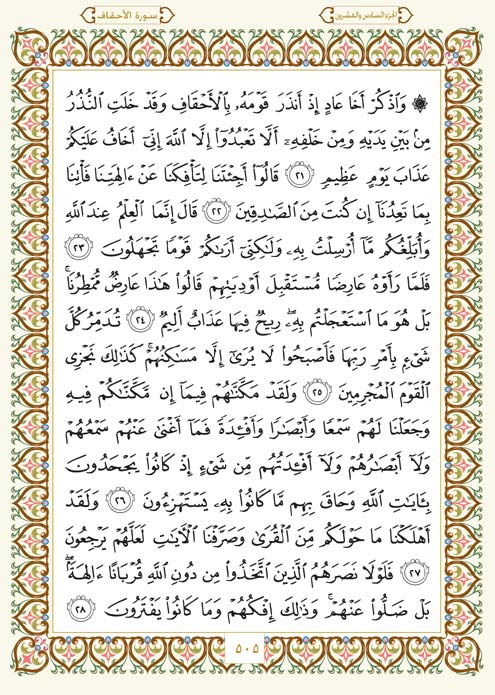 الجزء السادس والعشرون
سورة الأحقاف
۞ وَٱذْكُرْ أَخَا عَادٍ إِذْ أَنذَرَ قَوْمَهُۥ بِٱلْأَحْقَافِ وَقَدْ خَلَتِ ٱلنُّذُرُ
مِنۢ بَيْنِ يَدَيْهِ وَمِنْ خَلْفِهِۦٓ أَلَّا تَعْبُدُوٓا۟ إِلَّا ٱللَّهَ إِنِّىٓ أَخَافُ عَلَيْكُمْ
عَذَابَ يَوْمٍ عَظِيمٍ ٢١ قَالُوٓا۟ أَجِئْتَنَا لِتَأْفِكَنَا عَنْ ءَالِهَتِنَا فَأْتِنَا
بِمَا تَعِدُنَآ إِن كُنتَ مِنَ ٱلصَّـٰدِقِينَ ٢٢ قَالَ إِنَّمَا ٱلْعِلْمُ عِندَ ٱللَّهِ
وَأُبَلِّغُكُم مَّآ أُرْسِلْتُ بِهِۦ وَلَـٰكِنِّىٓ أَرَىٰكُمْ قَوْمًا تَجْهَلُونَ ٢٣
فَلَمَّا رَأَوْهُ عَارِضًا مُّسْتَقْبِلَ أَوْدِيَتِهِمْ قَالُوا۟ هَـٰذَا عَارِضٌ مُّمْطِرُنَا ۚ
بَلْ هُوَ مَا ٱسْتَعْجَلْتُم بِهِۦ ۖ رِيحٌ فِيهَا عَذَابٌ أَلِيمٌ ٢٤ تُدَمِّرُ كُلَّ
شَىْءٍۭ بِأَمْرِ رَبِّهَا فَأَصْبَحُوا۟ لَا يُرَىٰٓ إِلَّا مَسَـٰكِنُهُمْ ۚ كَذَٰلِكَ نَجْزِى
ٱلْقَوْمَ ٱلْمُجْرِمِينَ ٢٥ وَلَقَدْ مَكَّنَّـٰهُمْ فِيمَآ إِن مَّكَّنَّـٰكُمْ فِيهِ
وَجَعَلْنَا لَهُمْ سَمْعًا وَأَبْصَـٰرًا وَأَفْـِٔدَةً فَمَآ أَغْنَىٰ عَنْهُمْ سَمْعُهُمْ
وَلَآ أَبْصَـٰرُهُمْ وَلَآ أَفْـِٔدَتُهُم مِّن شَىْءٍ إِذْ كَانُوا۟ يَجْحَدُونَ
بِـَٔايَـٰتِ ٱللَّهِ وَحَاقَ بِهِم مَّا كَانُوا۟ بِهِۦ يَسْتَهْزِءُونَ ٢٦ وَلَقَدْ
أَهْلَكْنَا مَا حَوْلَكُم مِّنَ ٱلْقُرَىٰ وَصَرَّفْنَا ٱلْـَٔايَـٰتِ لَعَلَّهُمْ يَرْجِعُونَ
٢٧ فَلَوْلَا نَصَرَهُمُ ٱلَّذِينَ ٱتَّخَذُوا۟ مِن دُونِ ٱللَّهِ قُرْبَانًا ءَالِهَةًۢ ۖ
بَلْ ضَلُّوا۟ عَنْهُمْ ۚ وَذَٰلِكَ إِفْكُهُمْ وَمَا كَانُوا۟ يَفْتَرُونَ ٢٨
٥٠٥